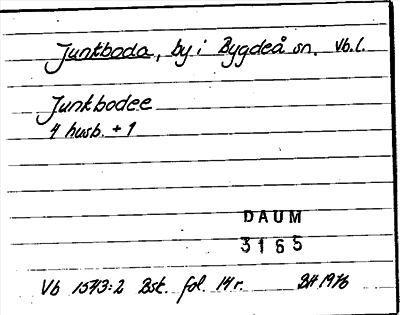 Junkboda, by i Bygdeå sn. Vb.l.
Junkbodee
4 husb. + 1
DAUM
3165
Vb 1543:2 Bsk. fol. 14r. BH 1976